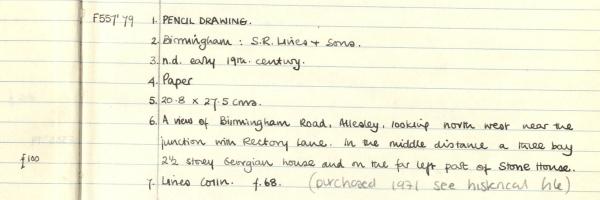 F557'79 1. PENCIL DRAWING.
2. Birmingham : S.R. Lines + Sons.
3. n.d. early 19th. century.
4. Paper
5. 20.8 x 27.5 cms.
6. A view of Birmingham Road, Allesley, looking north west near the
junction with Rectory Lane. In the middle distance a three bay
£100 2½ storey Georgian house and on the far left part of Stone House.
7. Lines Colln. f.68. (purchased 1971 see historical file)